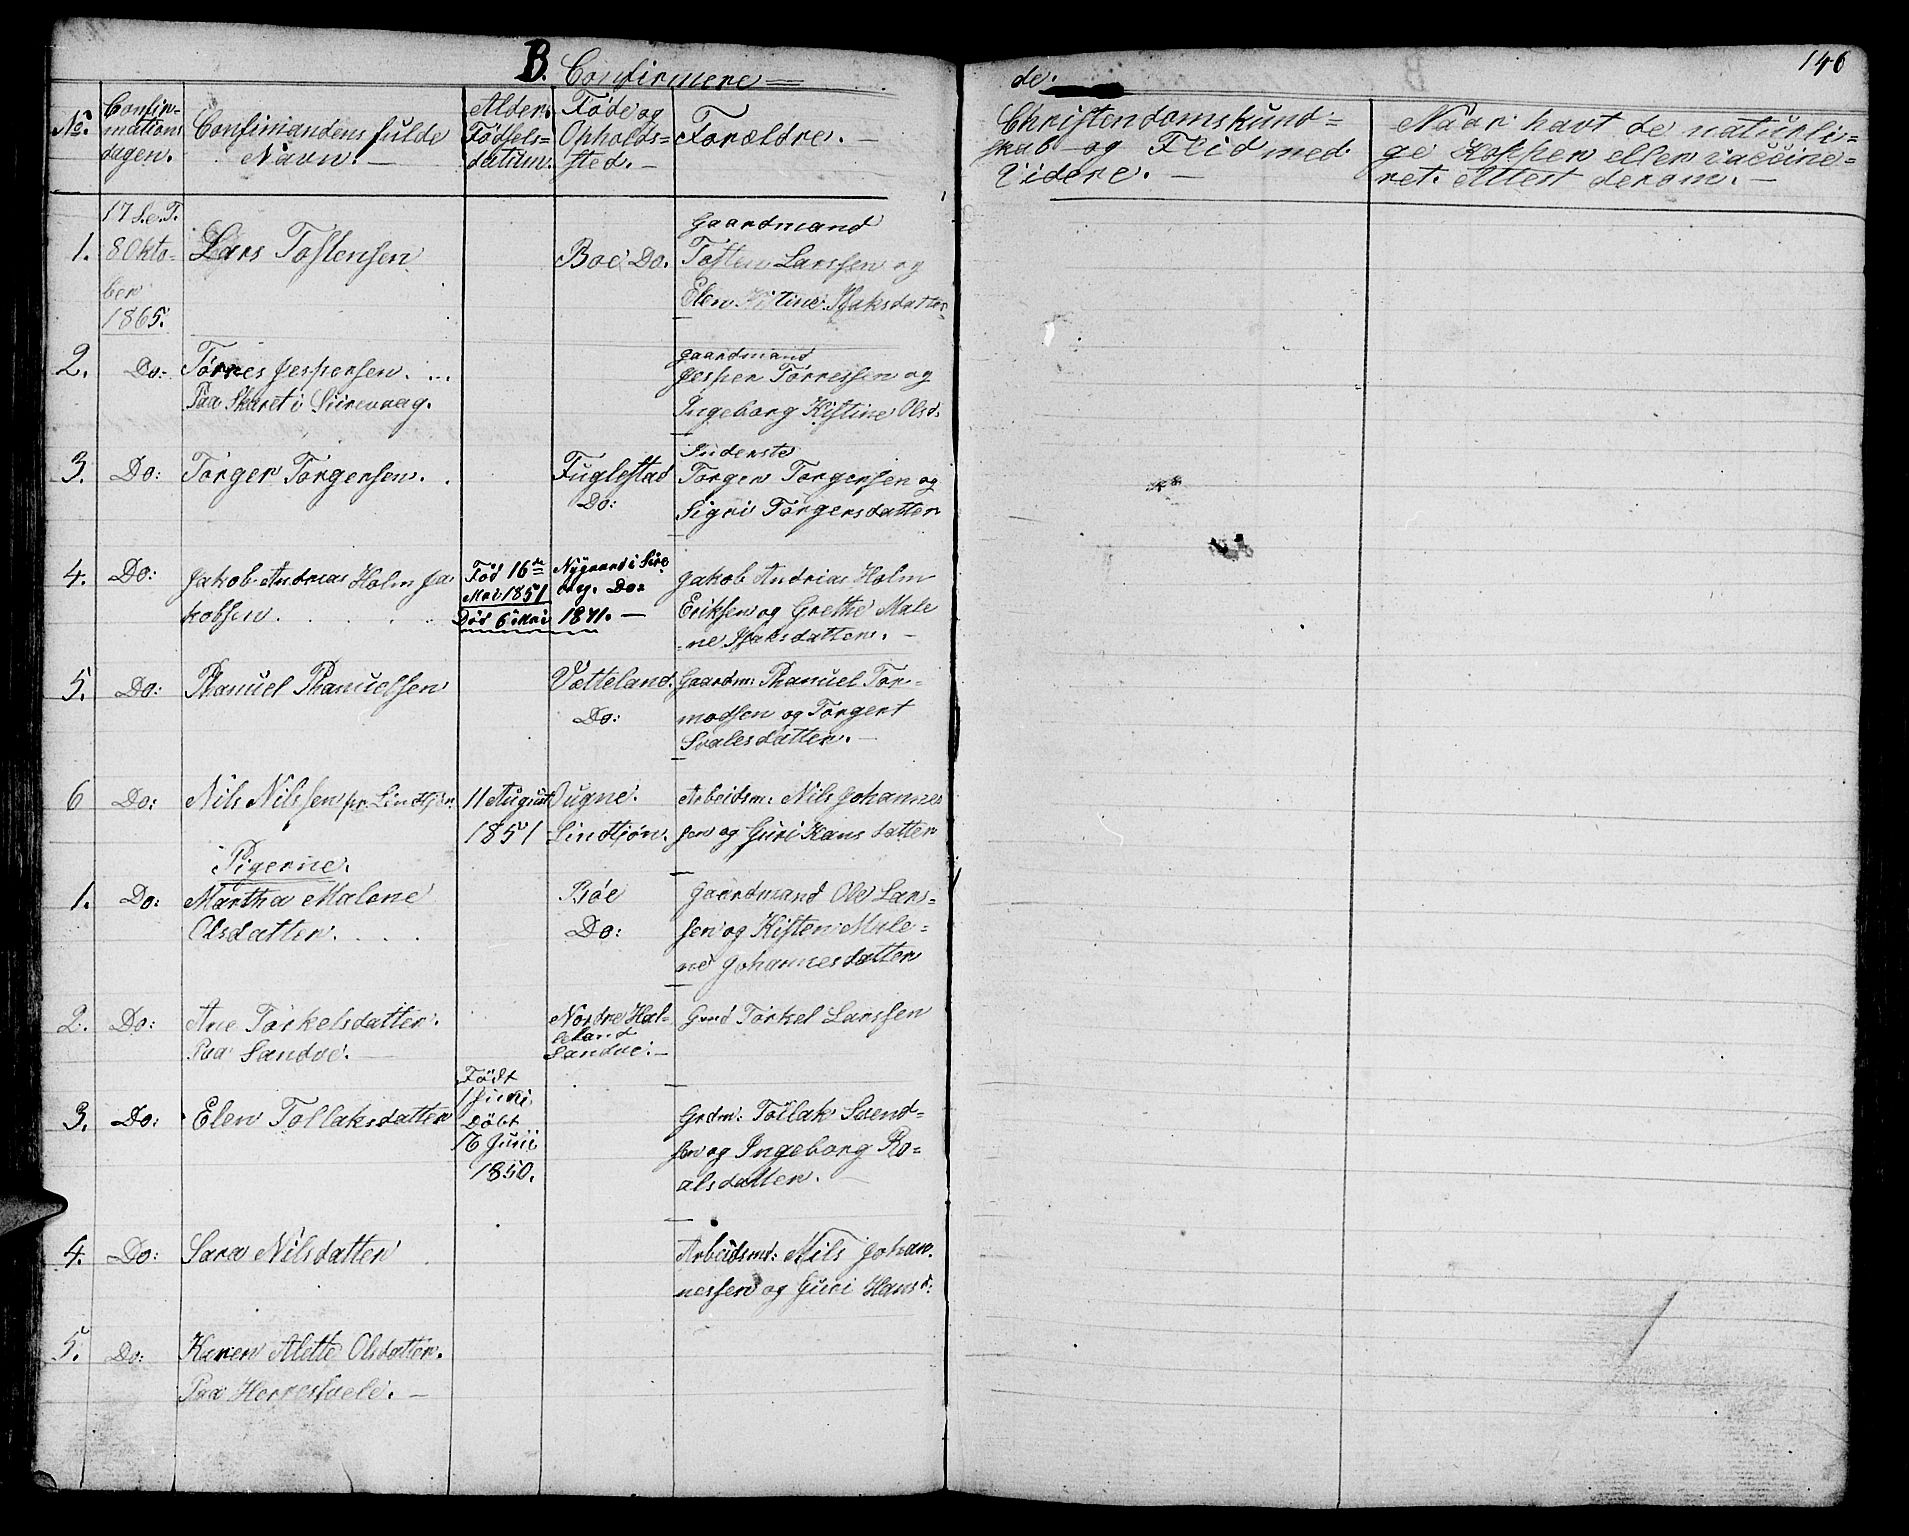 B. Confirmere=
de.
146
No.
Confir=
mations
dagen.
Confirmandens fulde
Navn. —
Alder.
Fødsels=
datum.
Føde og
Opholds=
sted. —
Forældre. —
Christendomskund=
skab og Flid med
Videre. —
Naar havt de naturli=
ge Kopper eller vaccine=
ret. Attest derom. —
1.
17 S.e.T.
8 Okto-
ber
1865.
Lars Tostensen
Boe Do.
Gaardmand
Tosten Larssen og
Elen Kistine Isaksdatter
2. Do: Tørres Jespersen. ...
Paa Skaret i Sirevaag.
gaardmand
Jesper Tørressen og
Ingeborg Kistine Olsd.
3. Do: Torger Torgersen. .
Fuglestad
Do:
Inderste
Torger Torgersen og
Sigri Torgersdatter
4. Do: Jakob Andreas Holm Ja
kobsen . . . .
Fød 16de
Mai 1851
Død 6 Mai
Nygaard i Sire
vag. Do:
1871. —
Jakob Andrias Holm
Eriksen og Grethe Male
ne Isaksdatter. —
5. Do: Phanuel Phanuelsen
Vetteland.
Do:
Gaardm: Phanuel Tor-
modsen og Torgert
Svalesdatter. —
6 Do: Nils Nilssen pr. Lindtjøn.
11 August
1851
Ougne.
Lindtjøn.
Arbeidsm: Nils Johannes
sen og Juri Hans datter
Pigerne.
1. Do: Martha Malene
Olsdatter. . . .
Bøe
Do:
Gaardmand Ole Lars=
sen og Kisten Male=
ne Johannesdatter
2. Do: Ane Torkelsdatter.
Paa Sandve. —
Nordre Hal-
leland
Sandve. —
Gmd Torkel Larssen
3. Do: Elen Tollaksdatter
Født
1 Juni
Døbt
16 Junii
1850.
Grdm: Tollak Svend=
sen og Ingeborg Ro=
alsdatter. —
4. Do: Sara Nilsdatter .
Arbeidsmd: Nils Johan.
nessen og Juri Hansd:
5. Do: Karen Alette Olsdatter.
Paa Herresvele. —